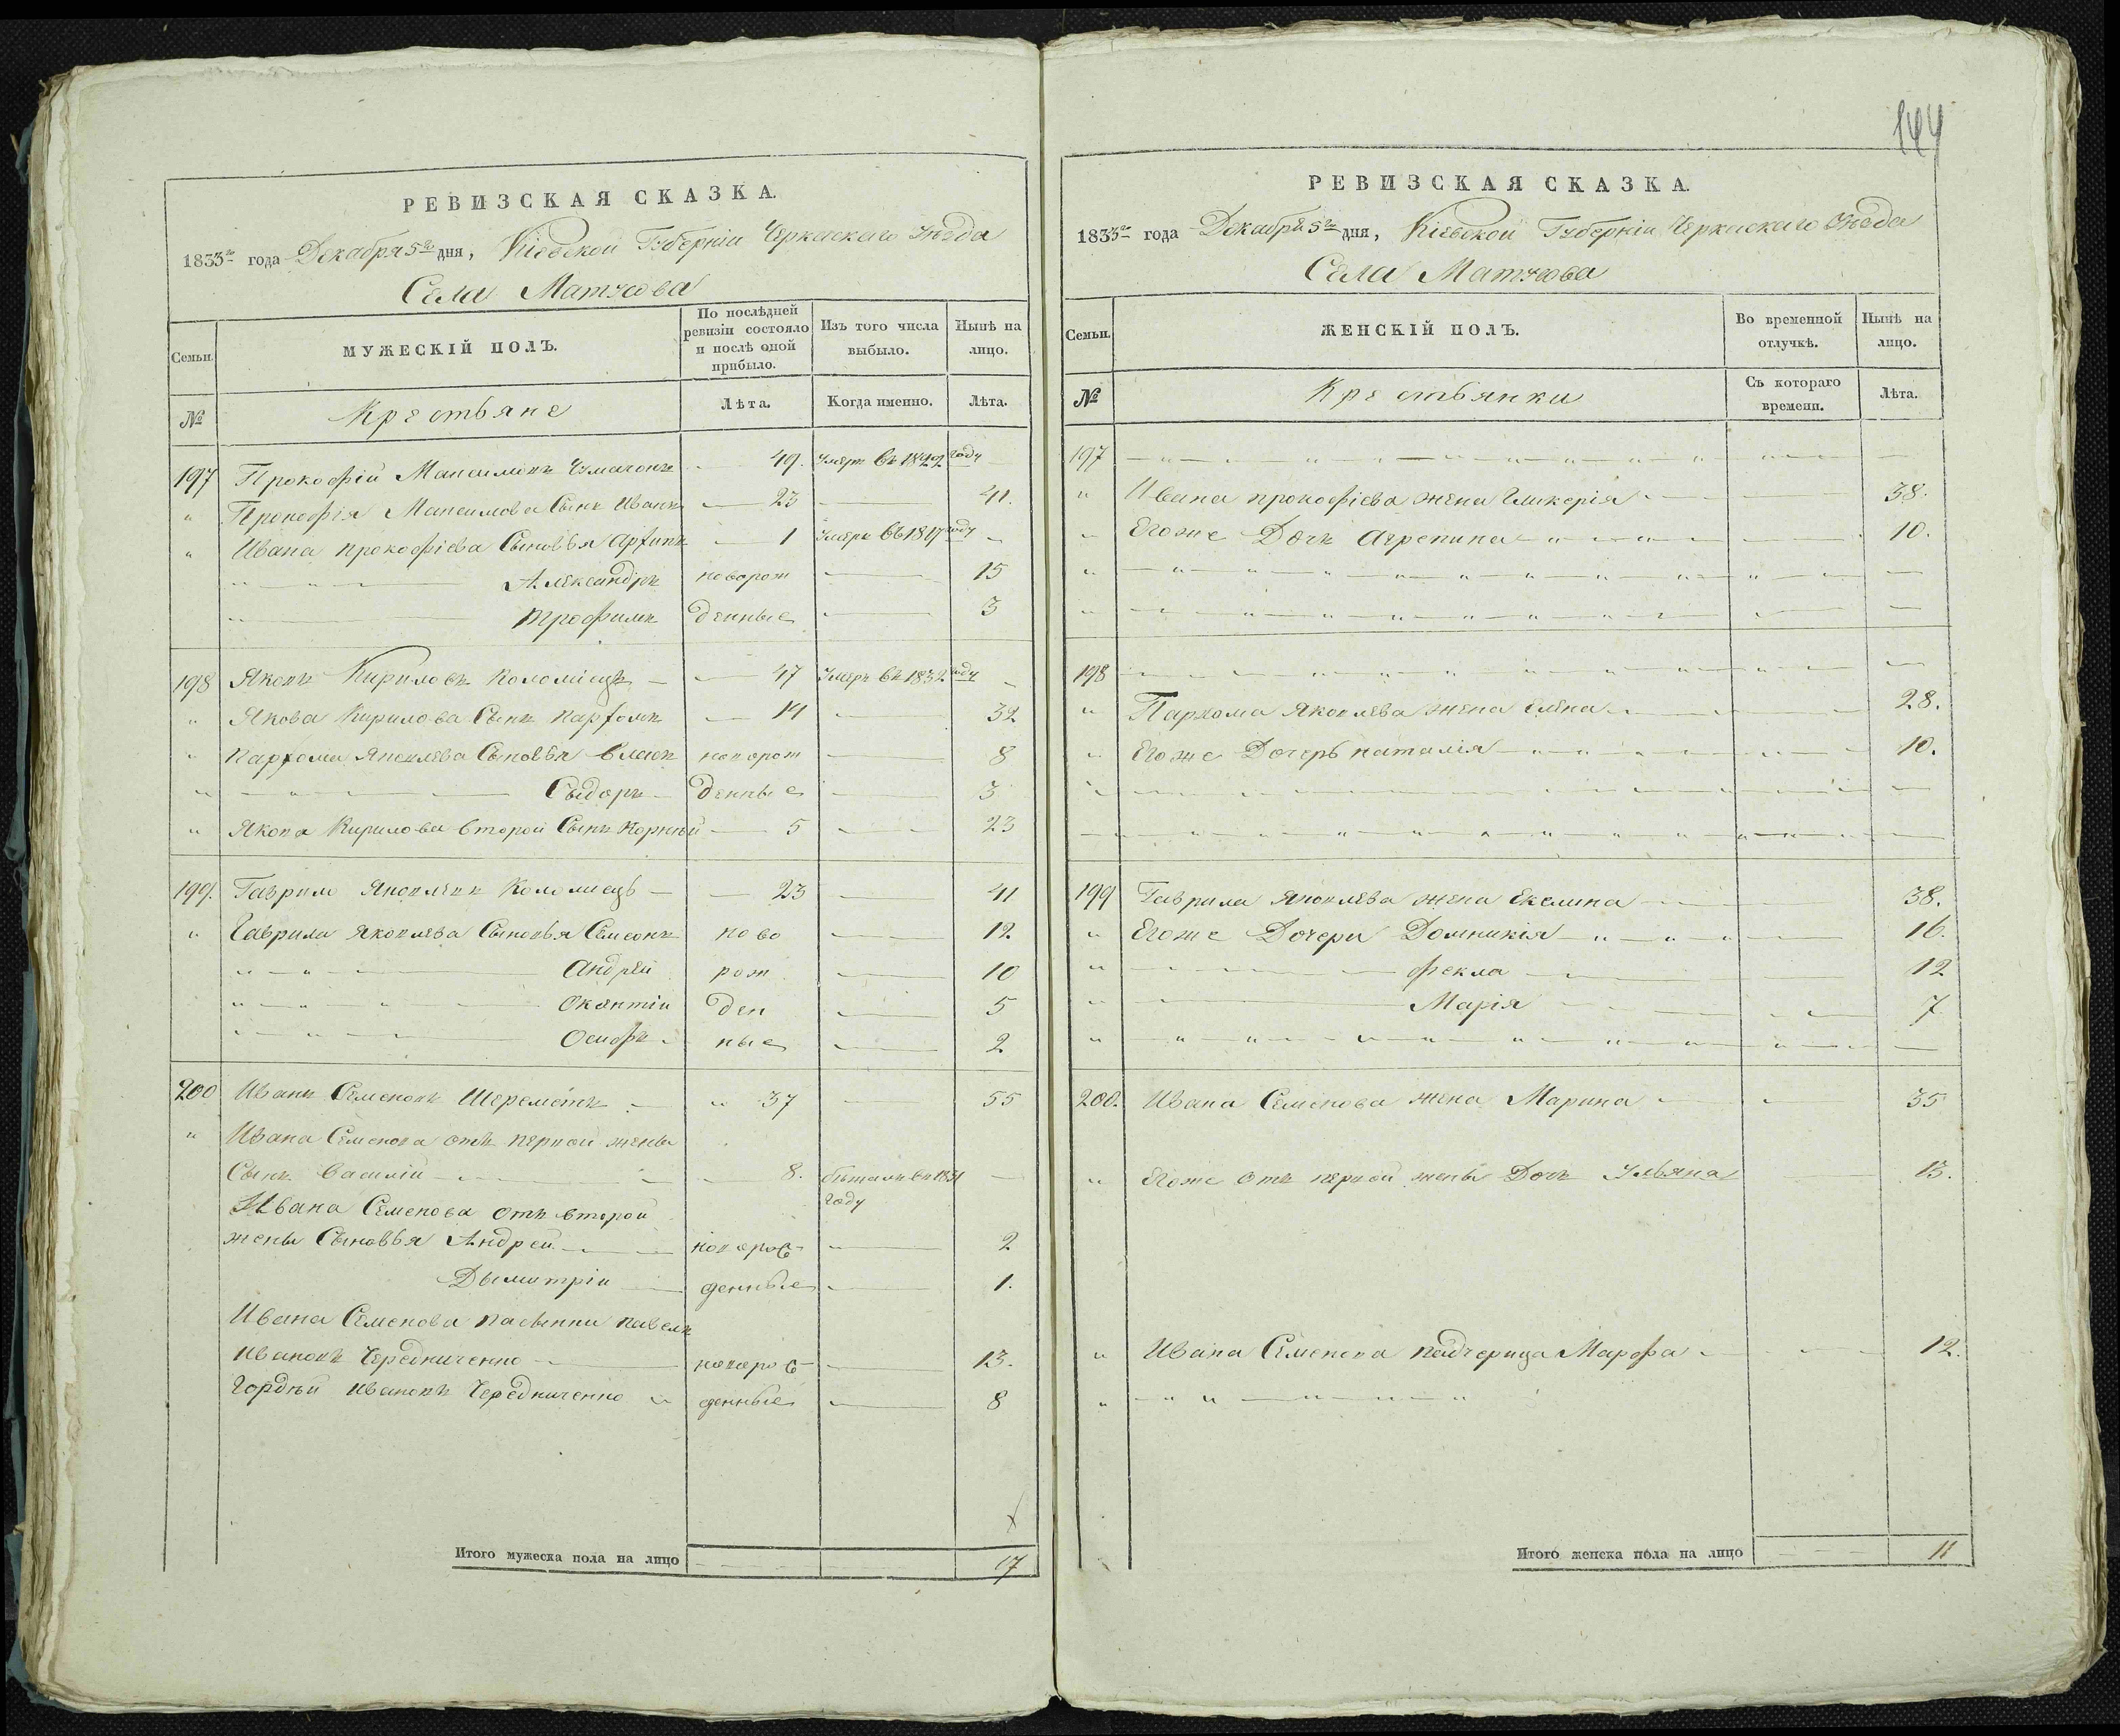 144
РЕВИЗСКАЯ СКАЗКА.
1833го года Декабря 5го дня, Кіевской Губерніи Черкаскаго Уѣзда
Села Матусова
Семьи.
МУЖЕСКІЙ ПОЛЪ.
По послѣдней ревизіи состояло и послѣ оной прибыло.
Изъ того числа выбыло.
Нынѣ на лицо.
№
Крестьяне
Лѣта.
Когда именно.
Лѣта.
197 Прокофій Максимовъ 49. Умеръ въ 1829 году
" Прокофія Максимова Сынъ Иванъ 23 41.
" Ивана прокофіева Сыновья Архипъ 1 Умеръ въ 1817 году
Александръ новорож 15
трофимъ денные 3
198 Яковъ Кириловъ Коломіецъ 47 Умеръ въ 1832 году
" Якова Кирилова Сынъ пархомъ 14 32
" пархома Яковлева Сыновья власъ новорож 8
" Сыдоръ денные 3
" Якова Кирилова второй Сынъ Корнѣй 5 23
199. Гаврило Яковлевъ Коломиецъ 23 41
" Гаврила Яковлева Сыновья Семенъ ново 12
Андрей рож 10
ден 5
Осифъ ные 2
200 Иванъ Семеновъ Шереметъ 37 55
" Ивана Семенова отъ первой жены
Сынъ Василій 8. бѣжалъ въ 1831 году
Ивана Семенова отъ второй
жены Сыновья Андрей новорож 2
Дымитрій денные 1.
Ивана Семенова пасынки павелъ
Ивановъ Чередниченко новорож 13.
Гордѣй Ивановъ Чередниченко денные 8
Итого мужеска пола на лицо 17
РЕВИЗСКАЯ СКАЗКА.
1833го года Декабря 5го дня, Кіевской Губерніи Черкаскаго Уѣзда
Села Матусова
Семьи.
ЖЕНСКІЙ ПОЛЪ.
Во временной отлучкѣ.
Нынѣ на лицо.
№
Крестьянки
Съ котораго времени.
Лѣта.
197
" Ивана прокофіева жена Гликерія 38.
" Егоже Дочь Агрепина 10.
198
" Пархома Яковлева жена Елена 28.
" Егоже Дочерь наталія 10.
199 Гаврила Яковлева жена Екелина 38.
" Егоже Дочери Домникія 16.
" фекла 12
" Марія 7
200. Ивана Семенова жена Марина 35
" Егоже отъ первой жены Дочь Ульяна 13.
" Ивана Семенова падчерица Марфа 12.
Итого женска пола на лицо 11